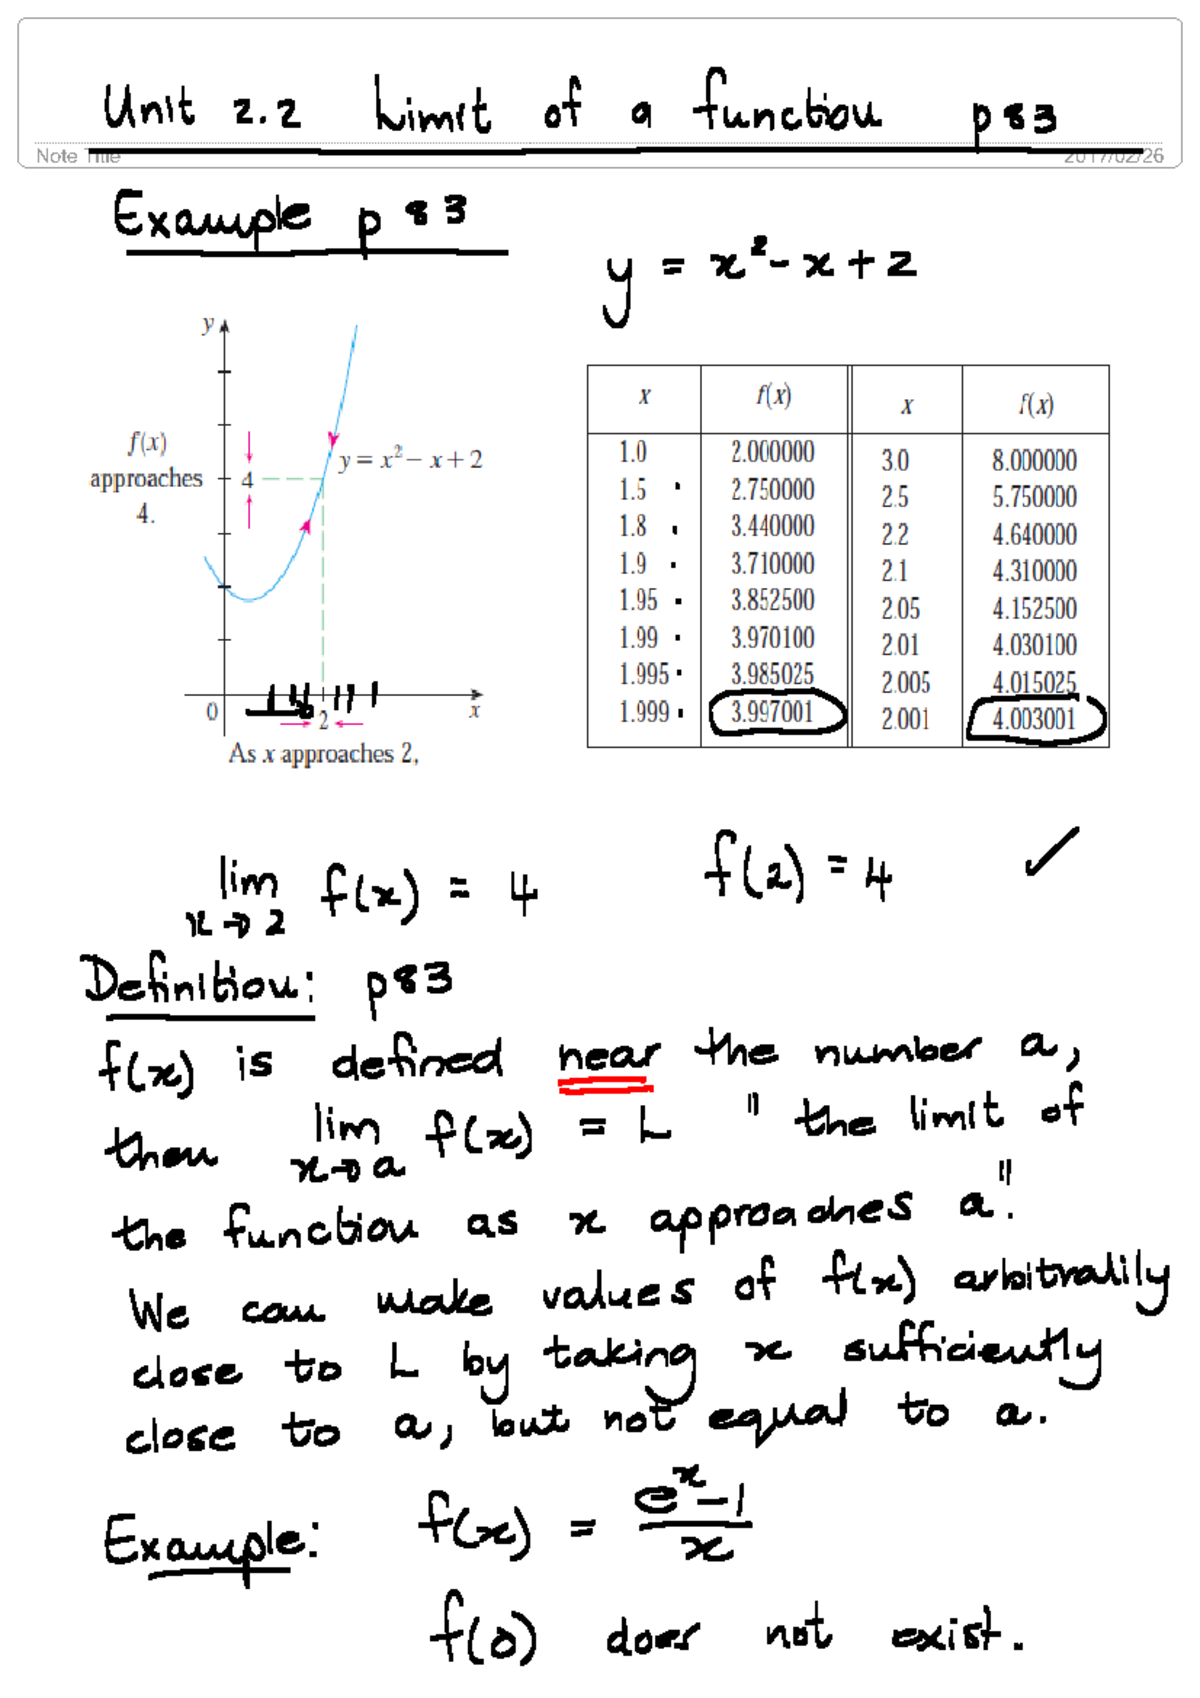 Unit 2.2 Limit of a function p83
Note Title 2017/02/26
Example p 83
y = x² - x + 2
y
f(x)
approaches
4.
4
y = x² − x + 2
0
2
x
As x approaches 2,
x f(x) x f(x)
1.0 2.000000 3.0 8.000000
1.5 2.750000 2.5 5.750000
1.8 3.440000 2.2 4.640000
1.9 3.710000 2.1 4.310000
1.95 3.852500 2.05 4.152500
1.99 3.970100 2.01 4.030100
1.995 3.985025 2.005 4.015025
1.999 3.997001 2.001 4.003001
lim x→2 f(x) = 4 f(2) = 4 ✓
Definition: p83
f(x) is defined near the number a,
then lim x→a f(x) = L " the limit of
the function as x approaches a".
We can make values of f(x) arbitralily
close to L by taking x sufficiently
close to a, but not equal to a.
Example: f(x) = (eˣ - 1)/x
f(0) does not exist.